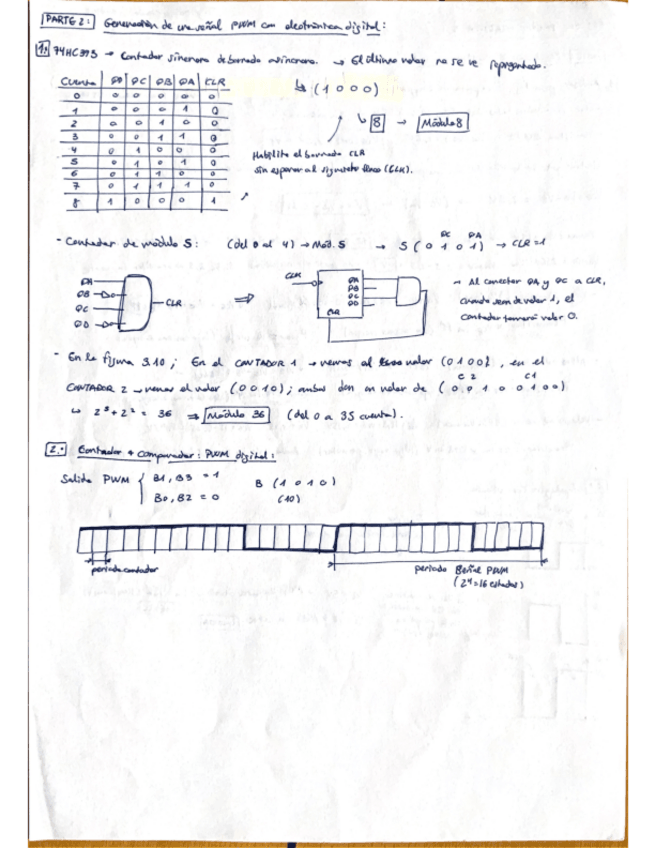 PARTE 2: Generación de una señal PWM con electrónica digital:
1. 74HC393 → Contador síncrono de borrado asíncrono. → El último valor no se ve representado.
Cuenta QD QC QB QA CLR
0 0 0 0 0 0
1 0 0 0 1 0
2 0 0 1 0 0
3 0 0 1 1 0
4 0 1 0 0 0
5 0 1 0 1 0
6 0 1 1 0 0
7 0 1 1 1 0
8 1 0 0 0 1
↳ (1 0 0 0)
↳ 8 → Módulo 8
Habilita el borrado CLR
sin esperar al siguiente flanco (CLK).
- Contador de módulo 5: (del 0 al 4) → Mód. 5 → 5 (0 1 0 1) → CLR=1
QC QA
QA
QB
QC
QD
CLR
⇒
CLK
QA
QB
QC
QD
CLR
→ Al conectar QA y QC a CLR,
cuando sean de valor 1, el
contador tomará valor 0.
- En la figura 3.10; En el CONTADOR 1 → vemos el valor (0100), en el
C2 C1
CONTADOR 2 → vemos el valor (0010); ambos dan un valor de (0 0 1 0 0 1 0 0)
↳ 2⁵ + 2² = 36 ⇒ Módulo 36 (del 0 a 35 cuenta).
2. Contador + comparador: PWM digital:
Salida PWM { B1, B3 = 1 B (1 0 1 0)
B0, B2 = 0 (10)
periodo contador
periodo Señal PWM
(2⁴=16 estados)